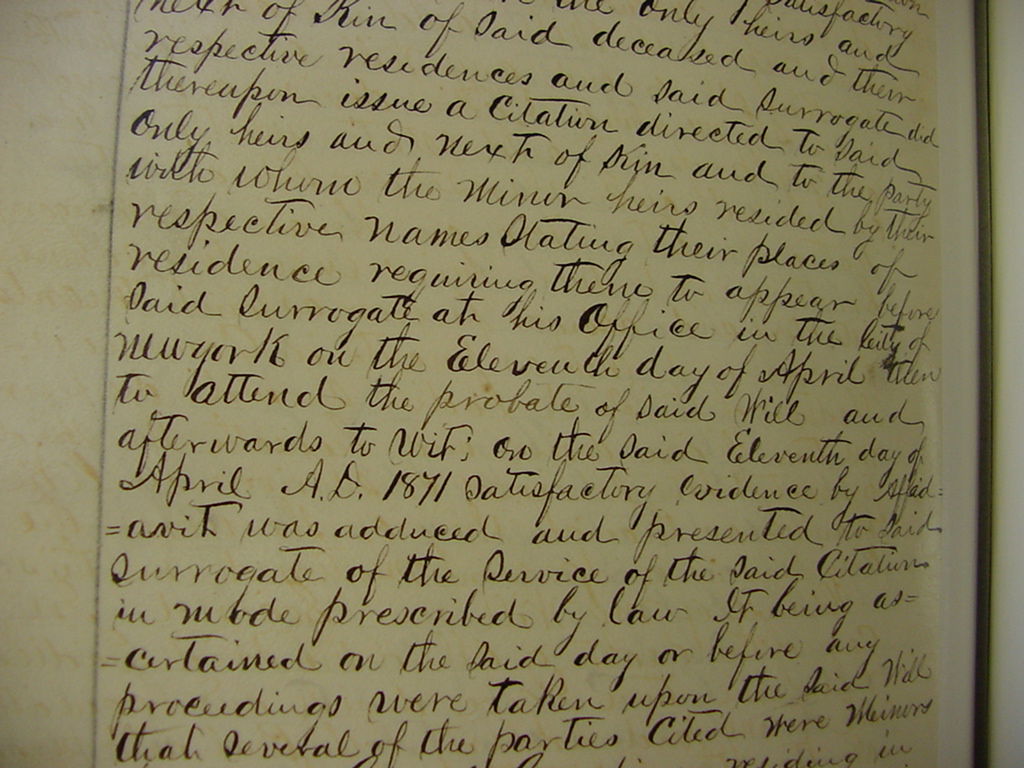 the only heirs and
next of Kin of said deceased and their
respective residences and said Surrogate did
thereupon issue a Citation directed to said
only heirs and next of Kin and to the party
with whom the Minor heirs resided by their
respective names stating their places of
residence requiring them to appear before
said Surrogate at his Office in the City of
New York on the Eleventh day of April then
to attend the probate of said Will and
afterwards to wit: on the said Eleventh day of
April A.D. 1871 Satisfactory evidence by Affid=
=avit was adduced and presented to said
Surrogate of the Service of the said Citation
in mode prescribed by law It being as=
=certained on the said day or before any
proceedings were taken upon the said Will
that several of the parties Cited were Minors
residing in